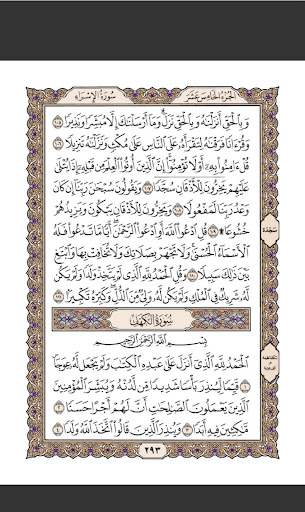 سُورَةُ الإِسْرَاءِ
الجُزْءُ الخَامِسَ عَشَرَ
وَبِالْحَقِّ أَنزَلْنَٰهُ وَبِالْحَقِّ نَزَلَ ۗ وَمَآ أَرْسَلْنَٰكَ إِلَّا مُبَشِّرًا وَنَذِيرًا ١٠٥
وَقُرْءَانًا فَرَقْنَٰهُ لِتَقْرَأَهُۥ عَلَى النَّاسِ عَلَىٰ مُكْثٍ وَنَزَّلْنَٰهُ تَنزِيلًا ١٠٦
قُلْ ءَامِنُوا۟ بِهِۦٓ أَوْ لَا تُؤْمِنُوٓا۟ ۚ إِنَّ الَّذِينَ أُوتُوا۟ الْعِلْمَ مِن قَبْلِهِۦٓ إِذَا يُتْلَىٰ
عَلَيْهِمْ يَخِرُّونَ لِلْأَذْقَانِ سُجَّدًا ١٠٧ وَيَقُولُونَ سُبْحَٰنَ رَبِّنَآ إِن كَانَ
وَعْدُ رَبِّنَا لَمَفْعُولًا ١٠٨ وَيَخِرُّونَ لِلْأَذْقَانِ يَبْكُونَ وَيَزِيدُهُمْ
خُشُوعًا ۩ ١٠٩ قُلِ ادْعُوا۟ اللَّهَ أَوِ ادْعُوا۟ الرَّحْمَٰنَ ۖ أَيًّا مَّا تَدْعُوا۟ فَلَهُ
الْأَسْمَآءُ الْحُسْنَىٰ ۚ وَلَا تَجْهَرْ بِصَلَاتِكَ وَلَا تُخَافِتْ بِهَا وَابْتَغِ
بَيْنَ ذَٰلِكَ سَبِيلًا ١١٠ وَقُلِ الْحَمْدُ لِلَّهِ الَّذِى لَمْ يَتَّخِذْ وَلَدًا وَلَمْ يَكُن
لَّهُۥ شَرِيكٌ فِى الْمُلْكِ وَلَمْ يَكُن لَّهُۥ وَلِىٌّ مِّنَ الذُّلِّ ۖ وَكَبِّرْهُ تَكْبِيرًۢا ١١١
سُورَةُ الكَهْفِ
بِسْمِ اللَّهِ الرَّحْمَٰنِ الرَّحِيمِ
الْحَمْدُ لِلَّهِ الَّذِىٓ أَنزَلَ عَلَىٰ عَبْدِهِ الْكِتَٰبَ وَلَمْ يَجْعَل لَّهُۥ عِوَجَا ۜ
١ قَيِّمًا لِّيُنذِرَ بَأْسًا شَدِيدًا مِّن لَّدُنْهُ وَيُبَشِّرَ الْمُؤْمِنِينَ
الَّذِينَ يَعْمَلُونَ الصَّٰلِحَٰتِ أَنَّ لَهُمْ أَجْرًا حَسَنًا
٢ مَّٰكِثِينَ فِيهِ أَبَدًا ٣ وَيُنذِرَ الَّذِينَ قَالُوا۟ اتَّخَذَ اللَّهُ وَلَدًا ٤
سجدة
٢٩٣